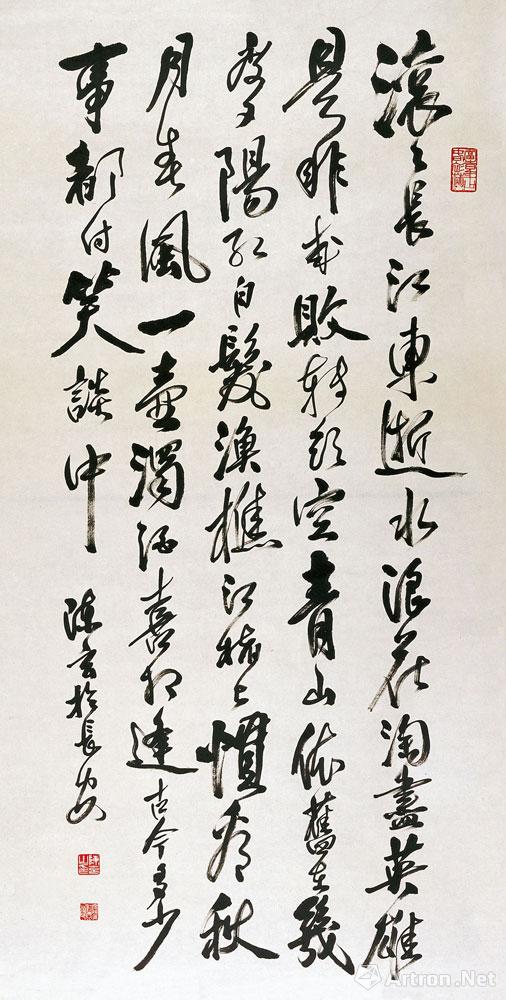 滚々長江東逝水浪花淘盡英雄
是非成敗转头空青山依舊在幾
度夕陽紅白髮漁樵江渚上慣看秋
月春風一壺濁酒喜相逢古今多少
事都付笑談中
陳 於長安
Artron.Net